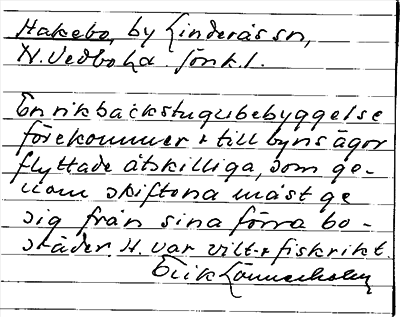 Hakebo, by Linderås sn,
N. Vedbo hd. Jönk. l.
En rik backstugubebyggelse
förekommer & till byns ägor
flyttade åtskilliga, som ge-
nom skiftena måst ge
sig från sina förra bo-
städer. H. var vilt- & fiskrikt.
Erik Lönnerholm